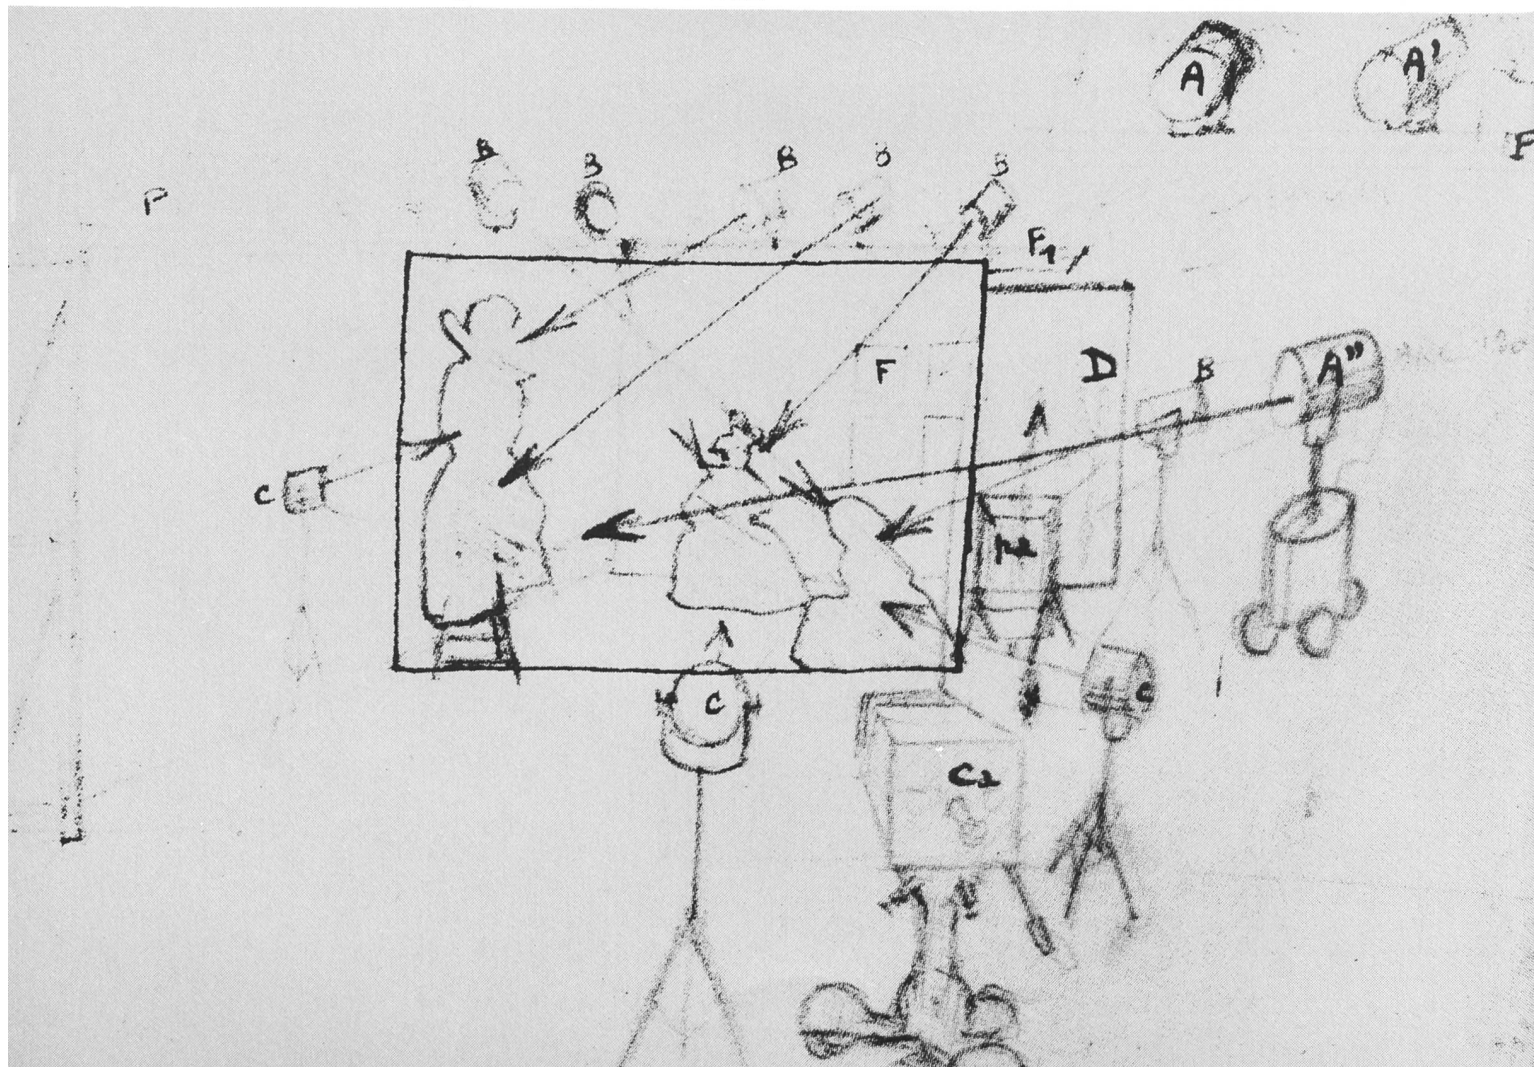 A
A'
P
B
B
B
B
B
P
F1
F
D
B
A"
C
C
C